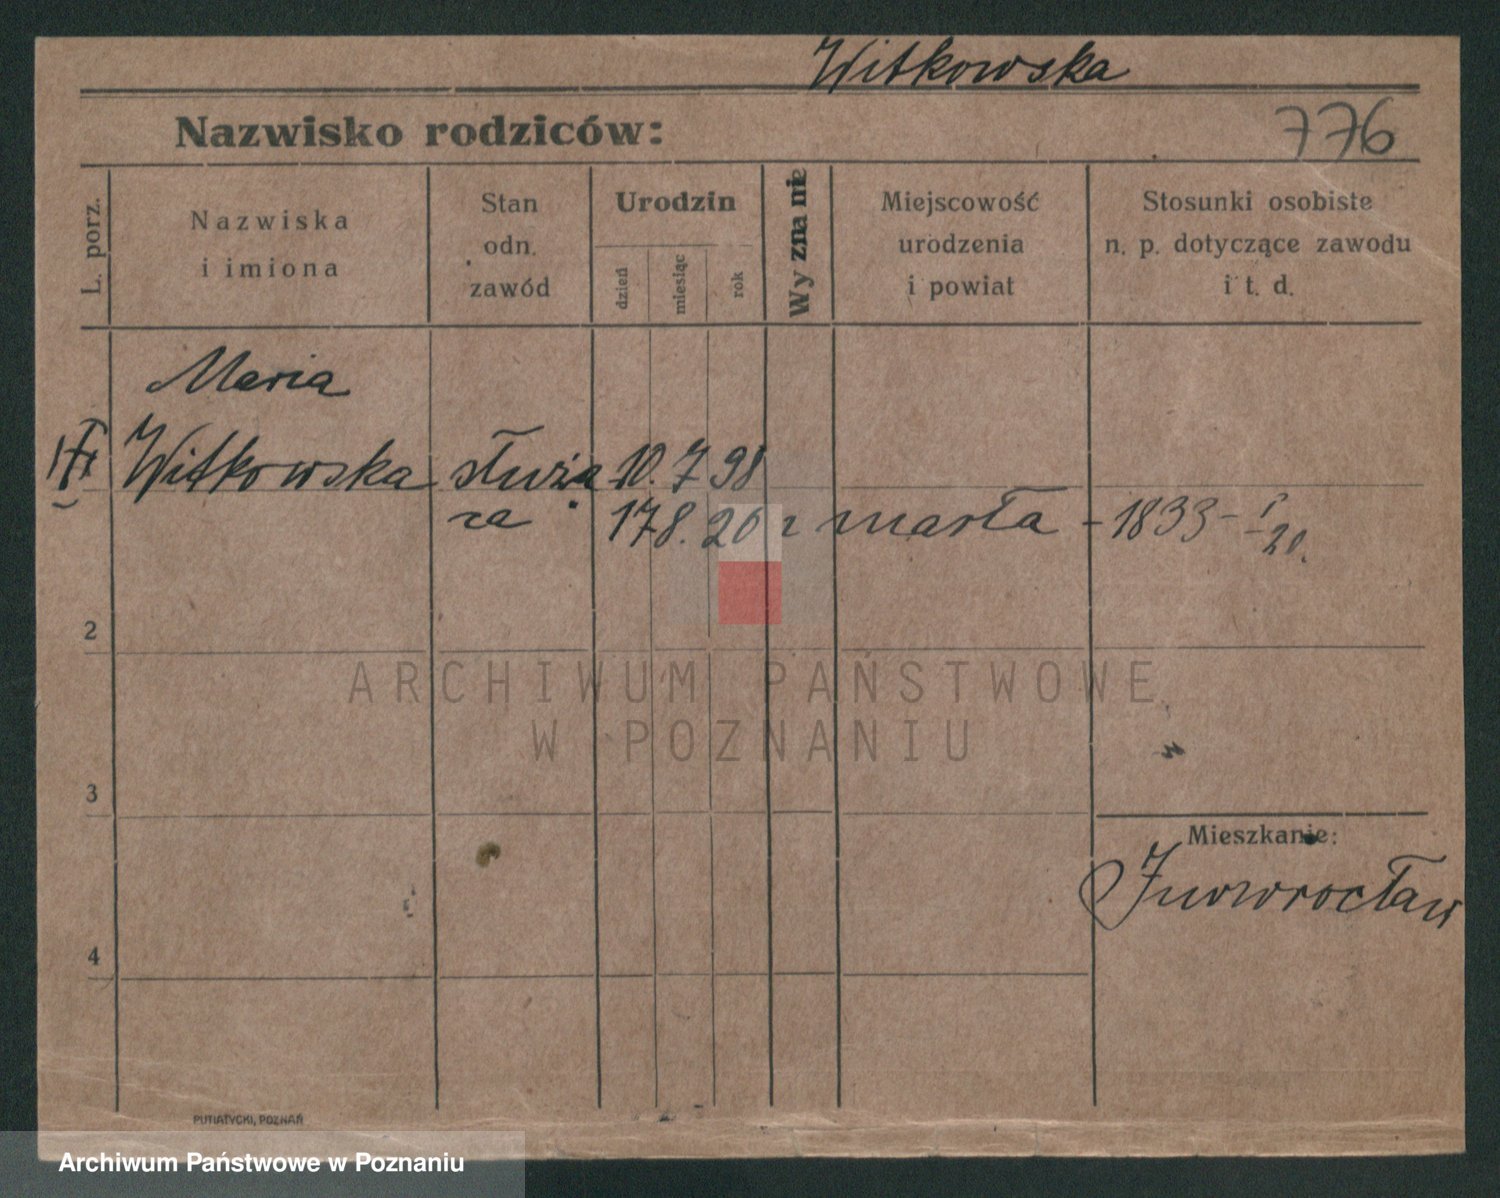 Witkowska
Nazwisko rodziców:
776
L. porz.
Nazwiska
i imiona
Stan
odn.
zawód
Urodzin
dzień
miesiąc
rok
Wyznanie
Miejscowość
urodzenia
i powiat
Stosunki osobiste
n. p. dotyczące zawodu
i t. d.
Maria
Witkowska służą 10. 7 98
ca 178. 20 zmarła - 1833 - I
20.
2
ARCHIWUM PAŃSTWOWE
W POZNANIU
3
Mieszkanie:
Inowrocław
4
PUTIATYCKI, POZNAŃ
Archiwum Państwowe w Poznaniu